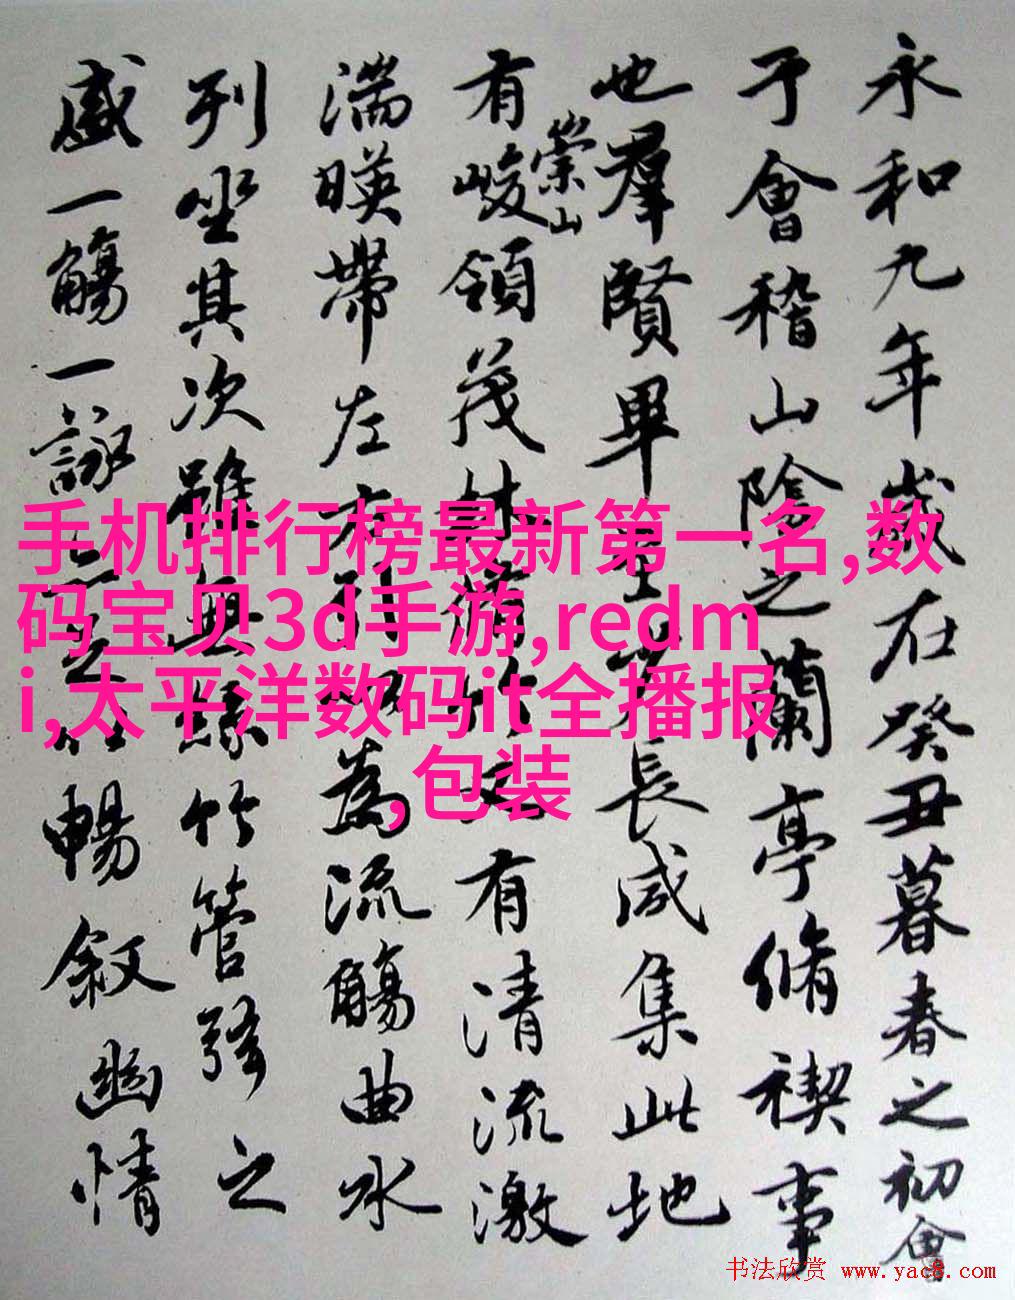 永和九年歲在癸丑暮春之初會
于會稽山陰之蘭亭脩禊事
也羣賢畢至少長咸集此地
有崇山峻領茂林脩竹又有清流激
湍暎帶左右引以為流觴曲水
列坐其次雖無絲竹管弦之
盛一觴一詠亦足以暢敘幽情
手机排行榜最新第一名,数
码宝贝3d手游,redm
i,太平洋数码it全播报
,包装
书法欣赏 www.yac8.com